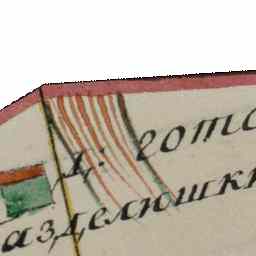 д: гото
азделюшки